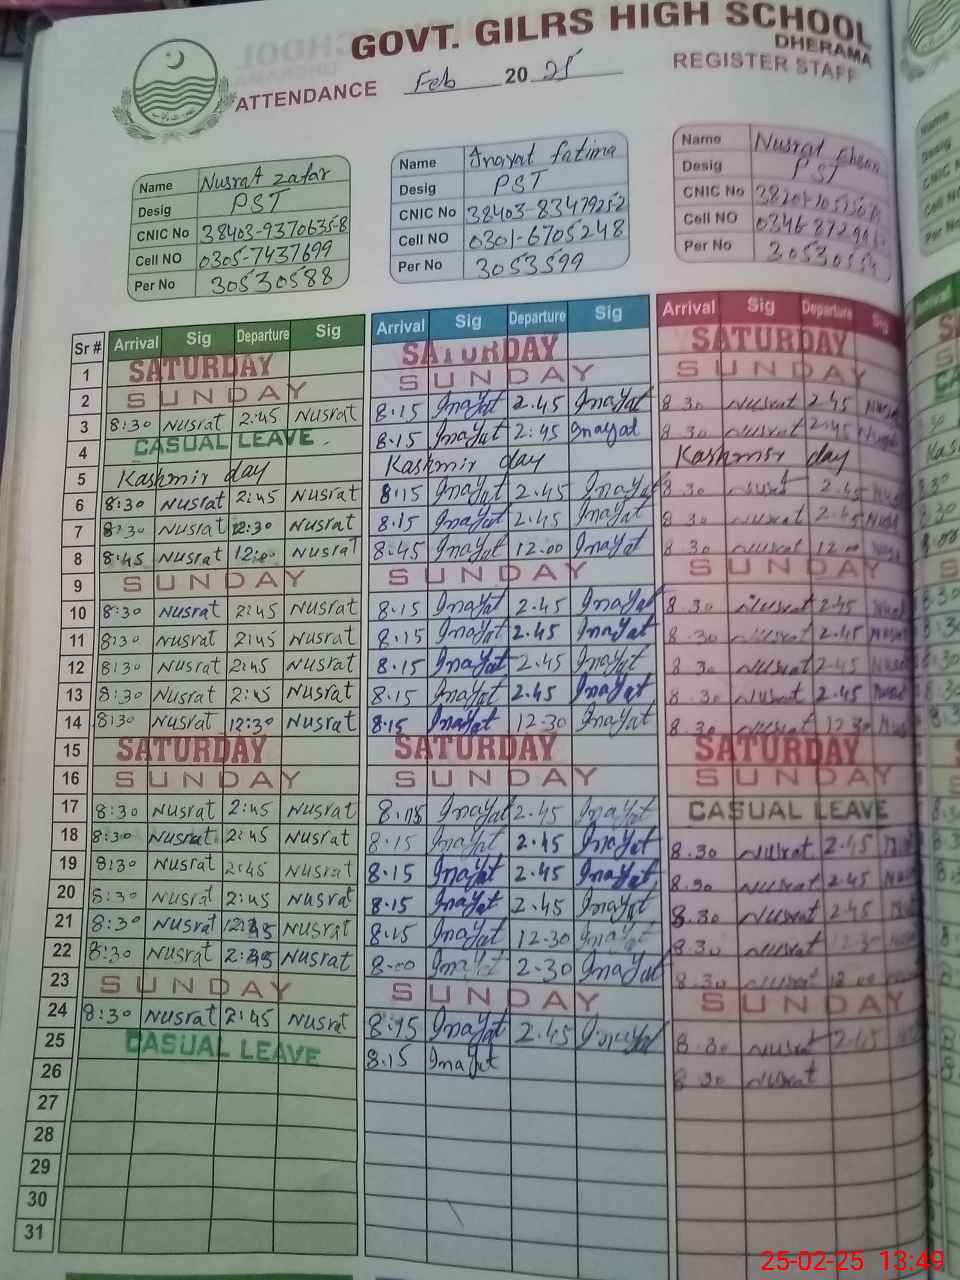 GOVT. GILRS HIGH SCHOOL
DHERAMA
ATTENDANCE Feb 20 25 REGISTER STAFF
Name Nusrat zafar
Desig PST
CNIC No 38403-9370635-8
Cell NO 0305-7437699
Per No 30530588
Name Inayat fatima
Desig PST
CNIC No 38403-8347925-2
Cell NO 0301-6705248
Per No 3053599
Name Nusrat Ehsan
Desig PST
CNIC No
Cell NO
Per No
Sr # Arrival Sig Departure Sig Arrival Sig Departure Sig Arrival Sig Departure Sig
1 SATURDAY SATURDAY SATURDAY
2 SUNDAY SUNDAY SUNDAY
3 8:30 Nusrat 2:45 Nusrat 8.15 Inayat 2.45 Inayat 8.30 Nusrat 2.45
4 CASUAL LEAVE 8.15 Inayat 2:45 Inayat 8.30 Nusrat 2.45
5 Kashmir day Kashmir day Kashmir day
6 8:30 Nusrat 2:45 Nusrat 8.15 Inayat 2.45 Inayat 8.30 2.45
7 8:30 Nusrat 12:30 Nusrat 8.15 Inayat 2.45 Inayat 8.30 Nusrat 2.45
8 8:45 Nusrat 12:00 Nusrat 8.45 Inayat 12.00 Inayat 8.30 Nusrat 12.00
9 SUNDAY SUNDAY SUNDAY
10 8:30 Nusrat 2:45 Nusrat 8.15 Inayat 2.45 Inayat 8.30 Nusrat 2.45
11 8:30 Nusrat 2:45 Nusrat 8.15 Inayat 2.45 Inayat 8.30 Nusrat 2.45
12 8:30 Nusrat 2:45 Nusrat 8.15 Inayat 2.45 Inayat 8.30 Nusrat 2.45
13 8:30 Nusrat 2:45 Nusrat 8.15 Inayat 2.45 Inayat 8.30 Nusrat 2.45
14 8:30 Nusrat 12:30 Nusrat 8.15 Inayat 12.30 Inayat 8.30 Nusrat 12.30
15 SATURDAY SATURDAY SATURDAY
16 SUNDAY SUNDAY SUNDAY
17 8:30 Nusrat 2:45 Nusrat 8.15 Inayat 2.45 Inayat CASUAL LEAVE
18 8:30 Nusrat 2:45 Nusrat 8.15 Inayat 2.45 Inayat 8.30 Nusrat 2.45
19 8:30 Nusrat 2:45 Nusrat 8.15 Inayat 2.45 Inayat 8.30 Nusrat 2.45
20 8:30 Nusrat 2:45 Nusrat 8.15 Inayat 2.45 Inayat 8.30 Nusrat 2.45
21 8:30 Nusrat Nusrat 8.15 Inayat 12.30 Inayat 8.30 Nusrat 12.30
22 8:30 Nusrat Nusrat 8.00 Inayat 2.30 Inayat 8.30 Nusrat
23 SUNDAY SUNDAY SUNDAY
24 8:30 Nusrat 2:45 Nusrat 8.15 Inayat 2.45 Inayat 8.30 Nusrat 2.45
25 CASUAL LEAVE 8.15 Inayat 8.30 Nusrat
26
27
28
29
30
31
25-02-25 13:49